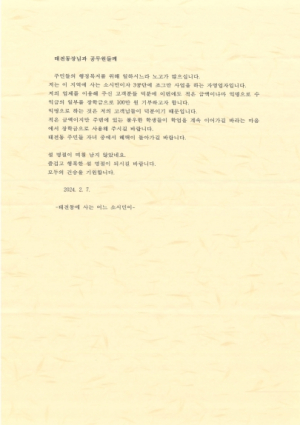 태전동장님과 공무원들께
주민들의 행정복지를 위해 일하시느라 노고가 많으십니다.
저는 이 지역에 사는 소시민이자 3분단에 조그만 사업을 하는 자영업자입니다.
저의 업체를 이용해 주신 고객분들 덕분에 이번에도 적은 금액이나마 익명으로 수
익금의 일부를 장학금으로 100만 원 기부하고자 합니다.
익명으로 하는 것은 저의 고객님들이 덕분이기 때문입니다.
적은 금액이지만 주변에 있는 불우한 학생들이 학업을 계속 이어가길 바라는 마음
에서 장학금으로 사용해 주시길 바랍니다.
태전동 주민들 자녀 중에서 혜택이 돌아가길 바랍니다.
설 명절이 며칠 남지 않았네요.
즐겁고 행복한 설 명절이 되시길 바랍니다.
모두의 건승을 기원합니다.
2024. 2. 7.
-태전동에 사는 어느 소시민이-